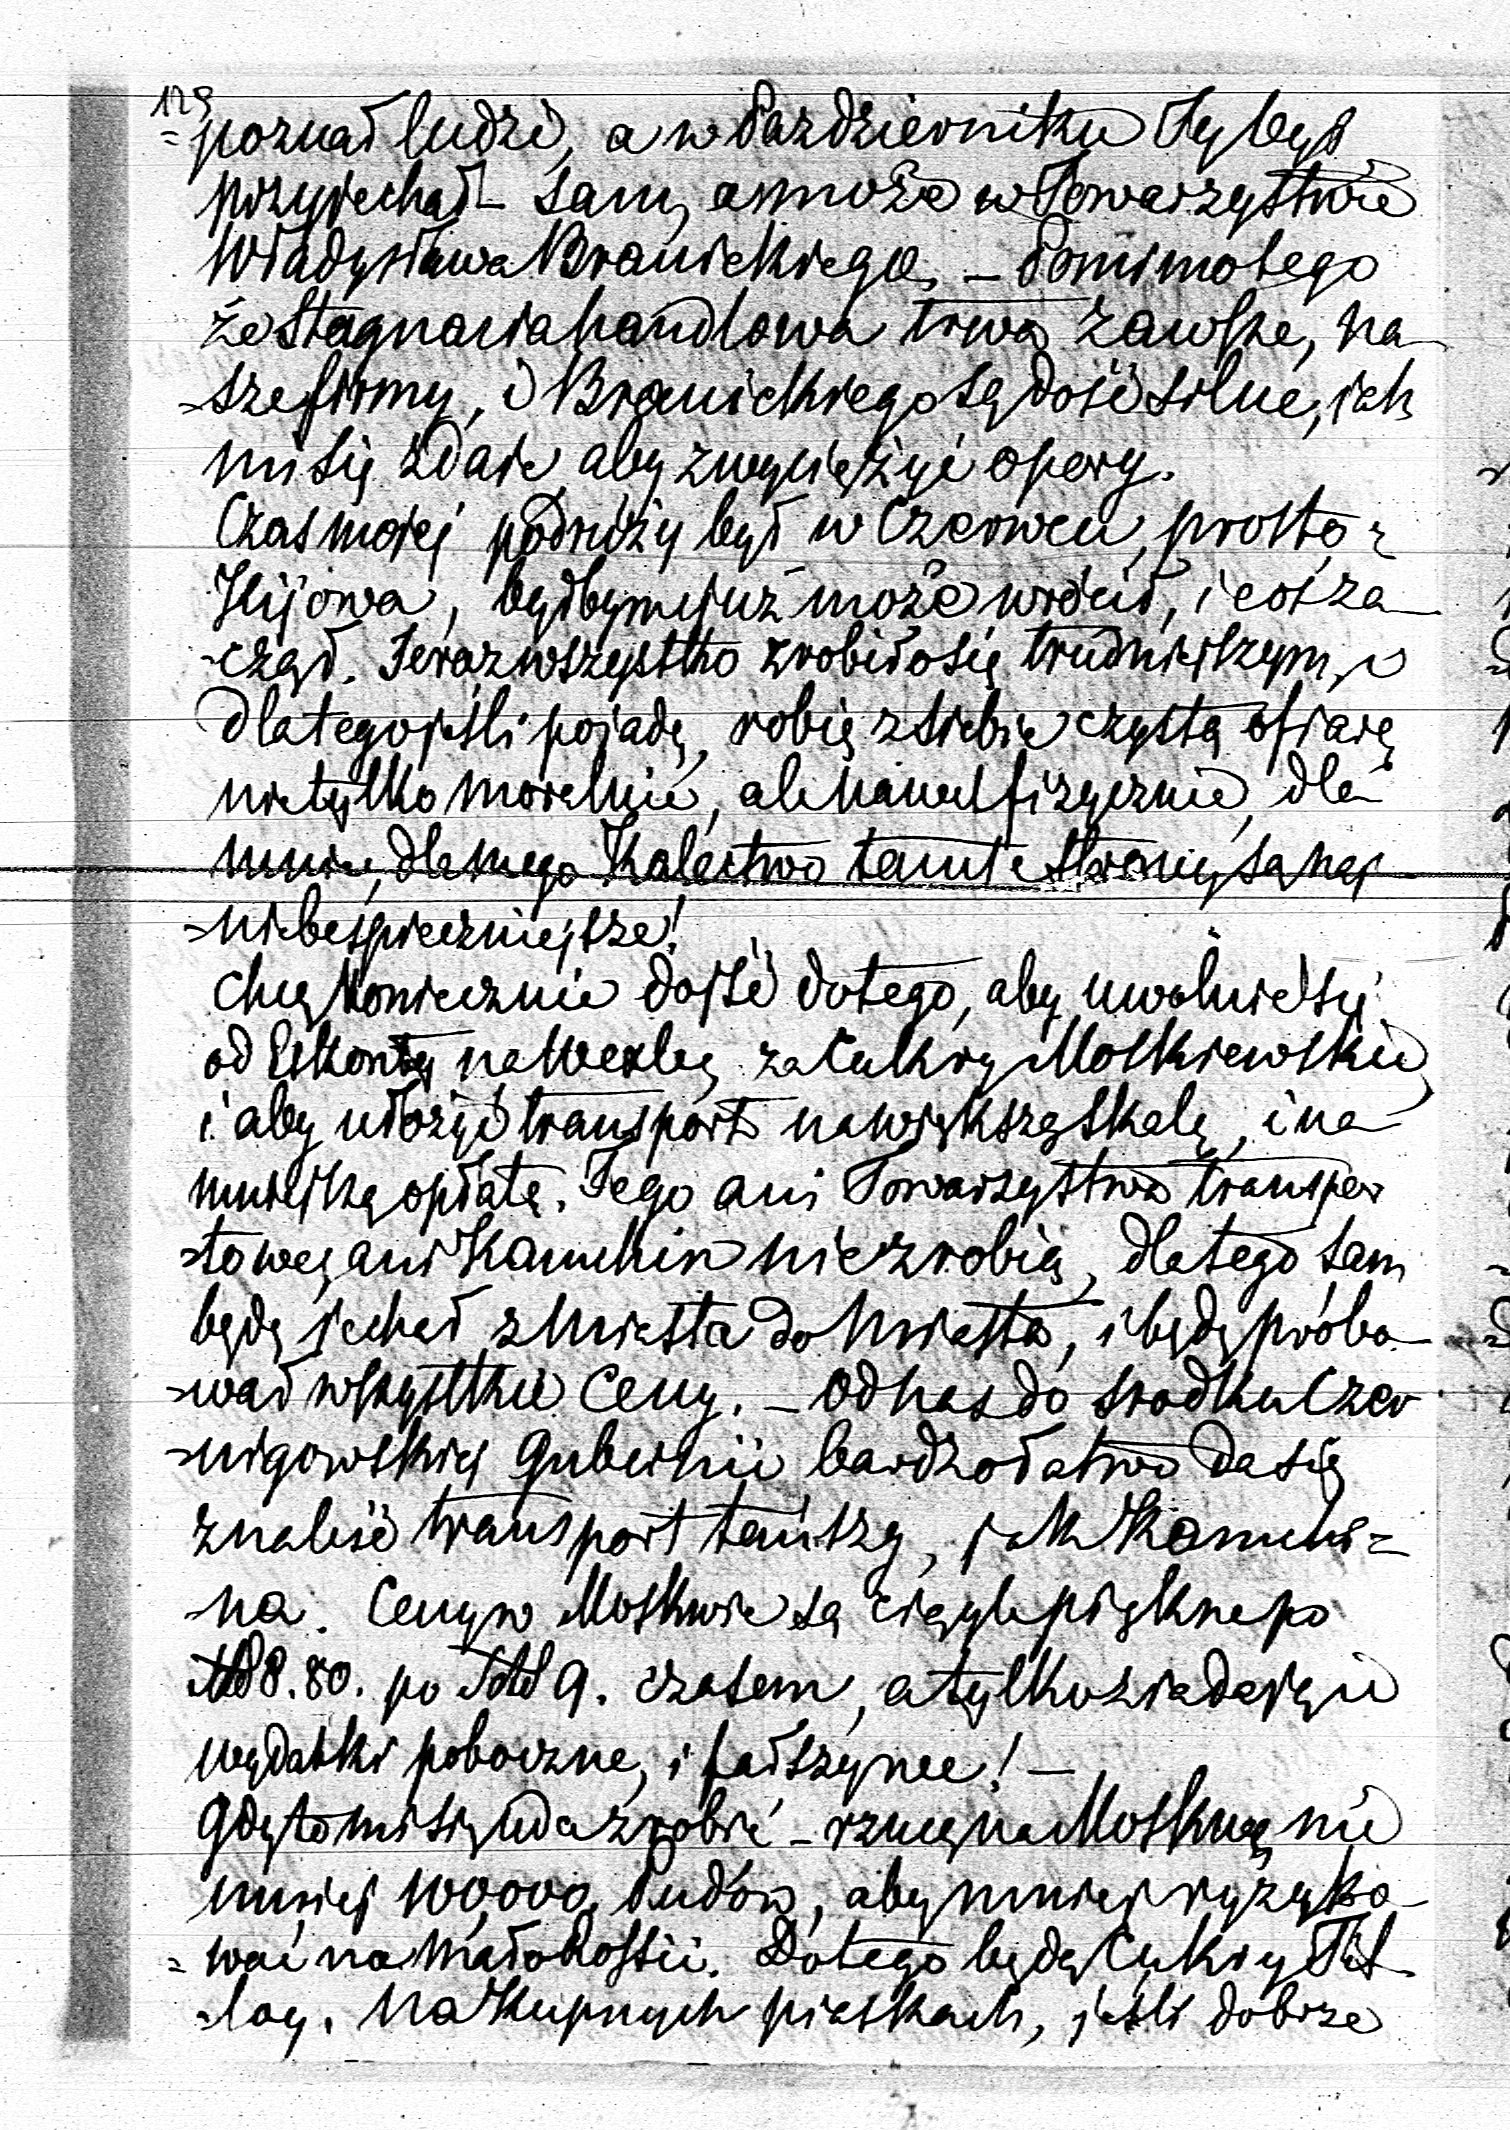 129
=poznał ludzi, a w Październiku Ty byś
przyjechał – sam, a może w Towarzystwie
Władysława Branickiego. – Pomimo tego
że Stagnacia handlowa trwa zawsze, na-
-sze firmy, i Branickiego są dość silne, jak
mi się zdaie aby zwyciężyć opory.
Czas mojej podróży był w Czerwcu, prosto z
Kijowa, byłbym już może wrócił, i coś za-
-czął. Teraz wszystko zrobiło się trudniejszym, i
dlatego jeśli pojadę, robię z siebie czystą ofiarę
nie tylko moralnie, ale nawet fizycznie, dla
mnie, dla mego Kalectwa tamte strony są naj-
-niebespieczniejsze!
Chcę koniecznie dojść do tego, aby uwolnić się
od Eskonty na Wexlę za Cukry Moskiewskie,
i aby ułożyć transport na większą skalę, i na
mniejszą opłatę. Tego ani Towarzystwa transpor
-towe, ani Kamkin nie zrobią, dlatego sam
będę jechał z Miasta do Miasta, i będę próbo-
-wał wszystkie Ceny. – Od nas do środku Czer
-nigowskiej Gubernii bardzo łatwo da się
znaleść transport tańszy, jak Kamki=
-na. Ceny w Moskwie są ciągle piękne po
8.80. po 9. czasem, a tylko ziadają je
wydatki poboczne, i fałszywe! –
Gdy to mi się uda zrobić – rzucę na Moskwę nie
mniej 100,000 Pudów, aby mniej ryzyko-
=wać na Małorossii. Do tego będą Cukry
. Na Kupnych piaskach, jeśli dobrze